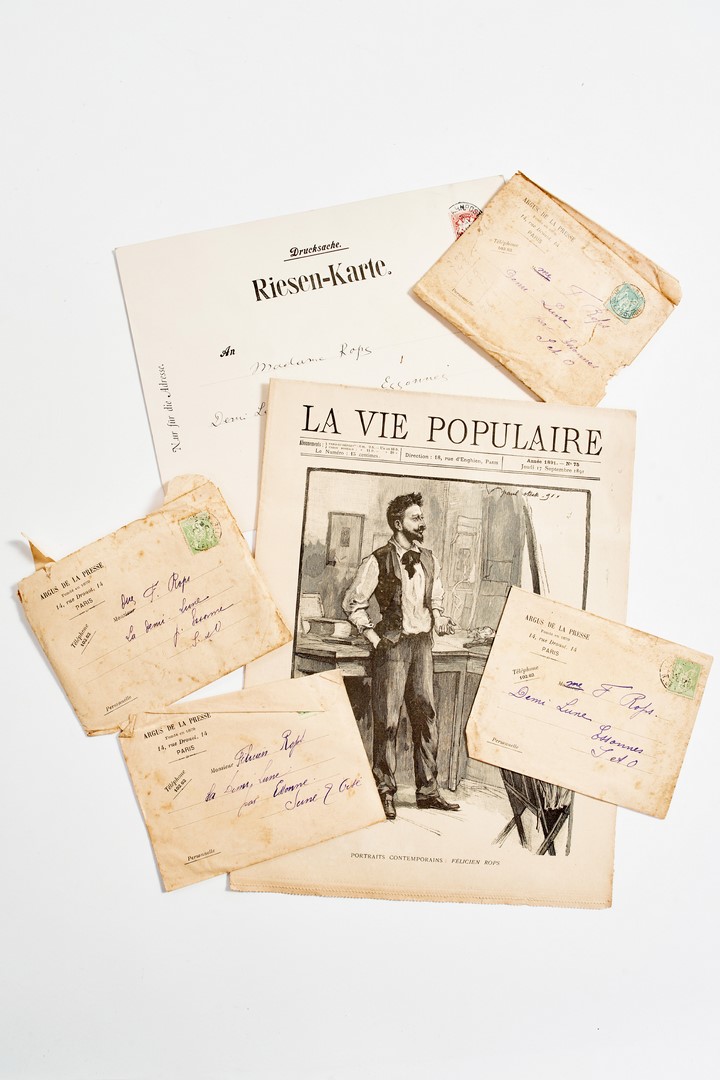 Drucksache.
Riesen-Karte.
An
Madame Rops
Essonnes
Demi L
Nur für die Adresse.
ARGUS DE LA PRESSE
14, rue Drouot, 14
PARIS
Téléphone
F. Rops
Demi Lune
Essonnes
S et O
LA VIE POPULAIRE
Abonnements:
Le Numéro: 15 centimes.
Direction: 18, rue d'Enghien, Paris
Année 1891. — N° 75
Jeudi 17 Septembre 1891
PORTRAITS CONTEMPORAINS: FÉLICIEN ROPS
ARGUS DE LA PRESSE
FONDÉ EN 1879
14, rue Drouot, 14
PARIS
Téléphone
102.62
Monsieur F. Rops
La demi Lune
Essonne
S. et O
Personnelle
ARGUS DE LA PRESSE
FONDÉ EN 1879
14, rue Drouot, 14
PARIS
Téléphone
102.62
Monsieur Félicien Rops
La Demi Lune
par Essonne
Seine & Oise
Personnelle
ARGUS DE LA PRESSE
FONDÉ EN 1879
14, rue Drouot, 14
PARIS
Téléphone
102.62
F. Rops.
Demi Lune
Essonnes
S et O
Personnelle